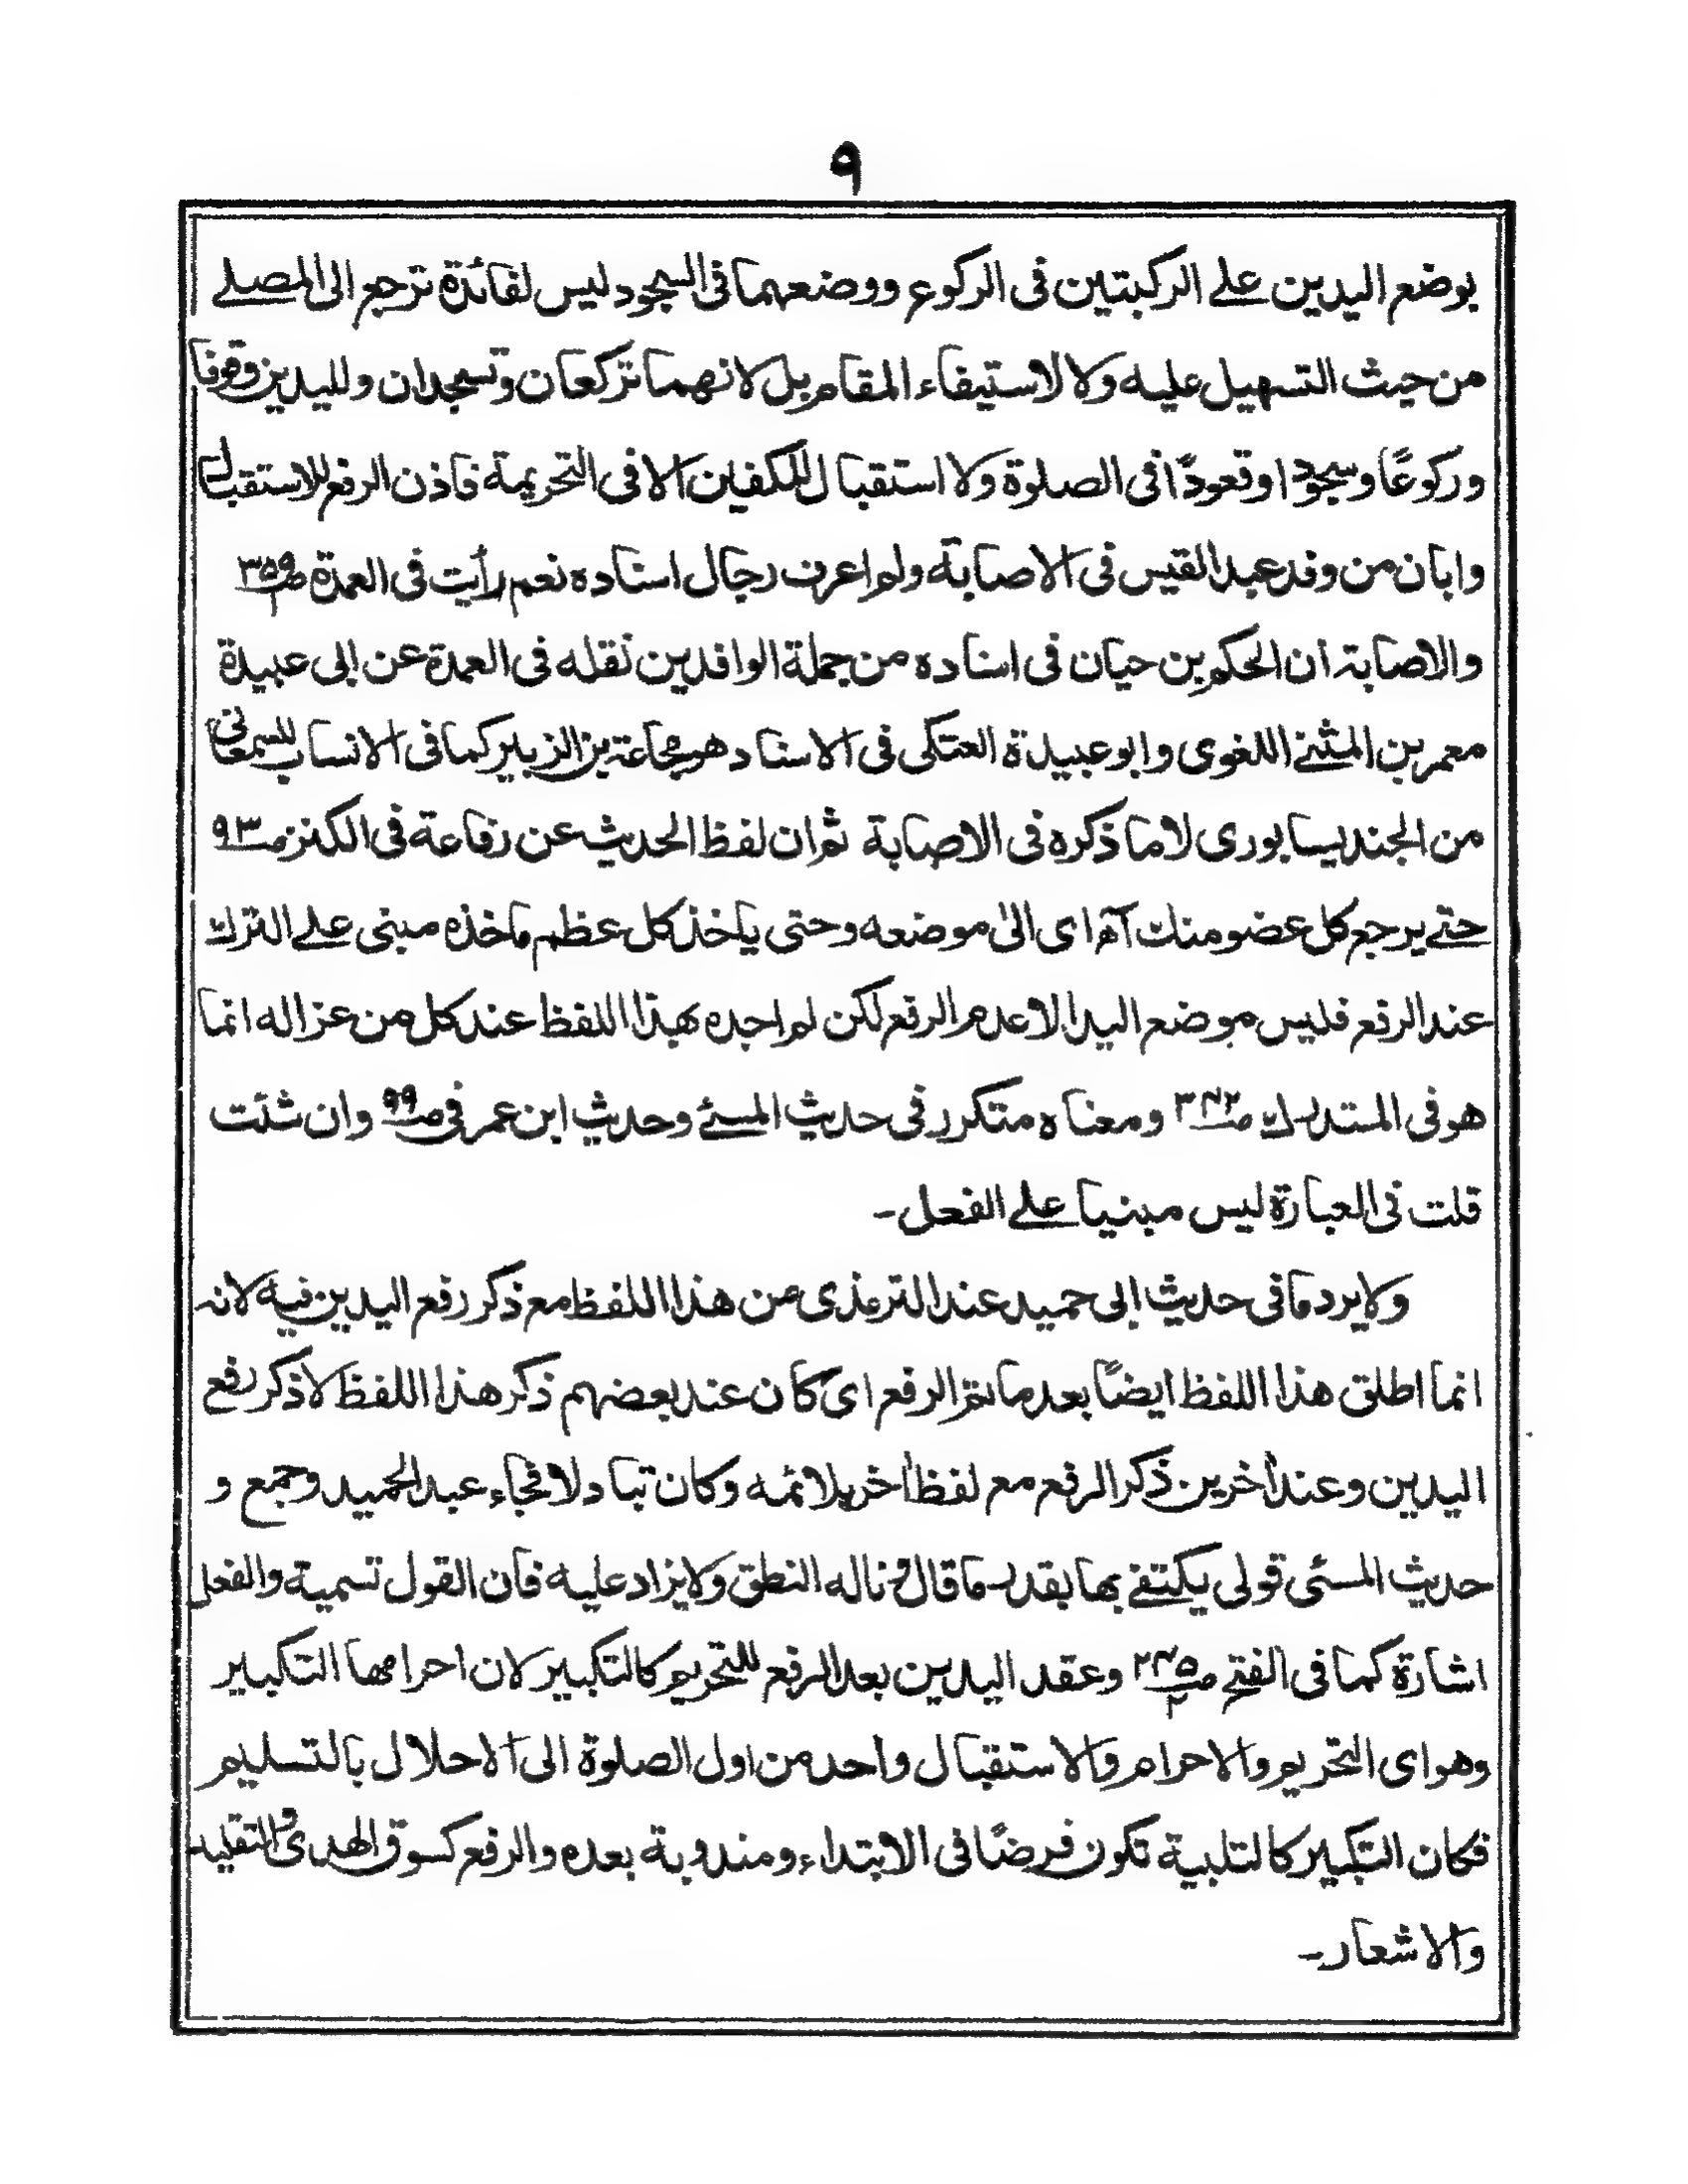 ۹
بوضع اليدين على الركبتين فى الركوع ووضعهما فى السجود ليس لفائدة ترجع الى المصلے
من حيث التسهيل عليه ولا لاستيفاء المقام بل لانهما تركعان وتسجدان ولليدين وقوفا
وركوعًا وسجودا وقعودًا فى الصلوة ولا استقبال للكفين الا فى التحريمة فاذن الرفع للاستقبال
وابان من وفد عبد القيس فى الاصابة ولم اعرف رجال اسناده نعم رأيت فى العمدة صـ ۳۵۹/۱
والاصابة ان الحكم بن حيان فى اسناده من جملة الوافدين نقله فى العمدة عن ابى عبيدة
معمر بن المثنے اللغوى وابو عبيدة العتكى فى الاسناد هو مجاعة بن الزبير كما فى الانساب للسمعانى
من الجنديسابورى لا ما ذكره فى الاصابة ثم ان لفظ الحديث عن رفاعة فى الكنز صـ ۹۳
حتے يرجع كل عضو منك آه اى الىٰ موضعه وحتى ياخذ كل عظم ماخذه مبنى علے الترك
عند الرفع فليس موضع اليد الا عدم الرفع لكن لم اجده بهذا اللفظ عند كل من عزا له انما
هو فى المستدرك صـ ۲۴۲ ومعناه متكرر فى حديث المسئے وحديث ابن عمر فى صـ ۹۹ وان شئت
قلت فى العبارة ليس مبنيا علے الفعل۔
ولا يرد ما فى حديث ابى حميد عند الترمذى من هذا اللفظ مع ذكر رفع اليدين فيه لانه
انما اطلق هذا اللفظ ايضًا بعد ما تم الرفع اى كان عند بعضهم ذكر هذا اللفظ لا ذكر رفع
اليدين وعند أخرين ذكر الرفع مع لفظ أخر يلائمه وكان تبادلا فجاء عبد الحميد وجمع و
حديث المسئى قولى يكتفے بها بقدر ما قال و ناله النطق ولا يزاد عليه فان القول تسمية والفعل
اشارة كما فى الفتح صـ ۲۴۵/۲ وعقد اليدين بعد الرفع للتحريم كالتكبير لان احرامها التكبير
وهو اى التحريم والاحرام والاستقبال واحد من اول الصلوة الى الاحلال بالتسليم
فكان التكبير كالتلبية تكون فرضًا فى الابتداء ومندوبة بعده والرفع كسوق الهدى والتقليد
والاشعار۔